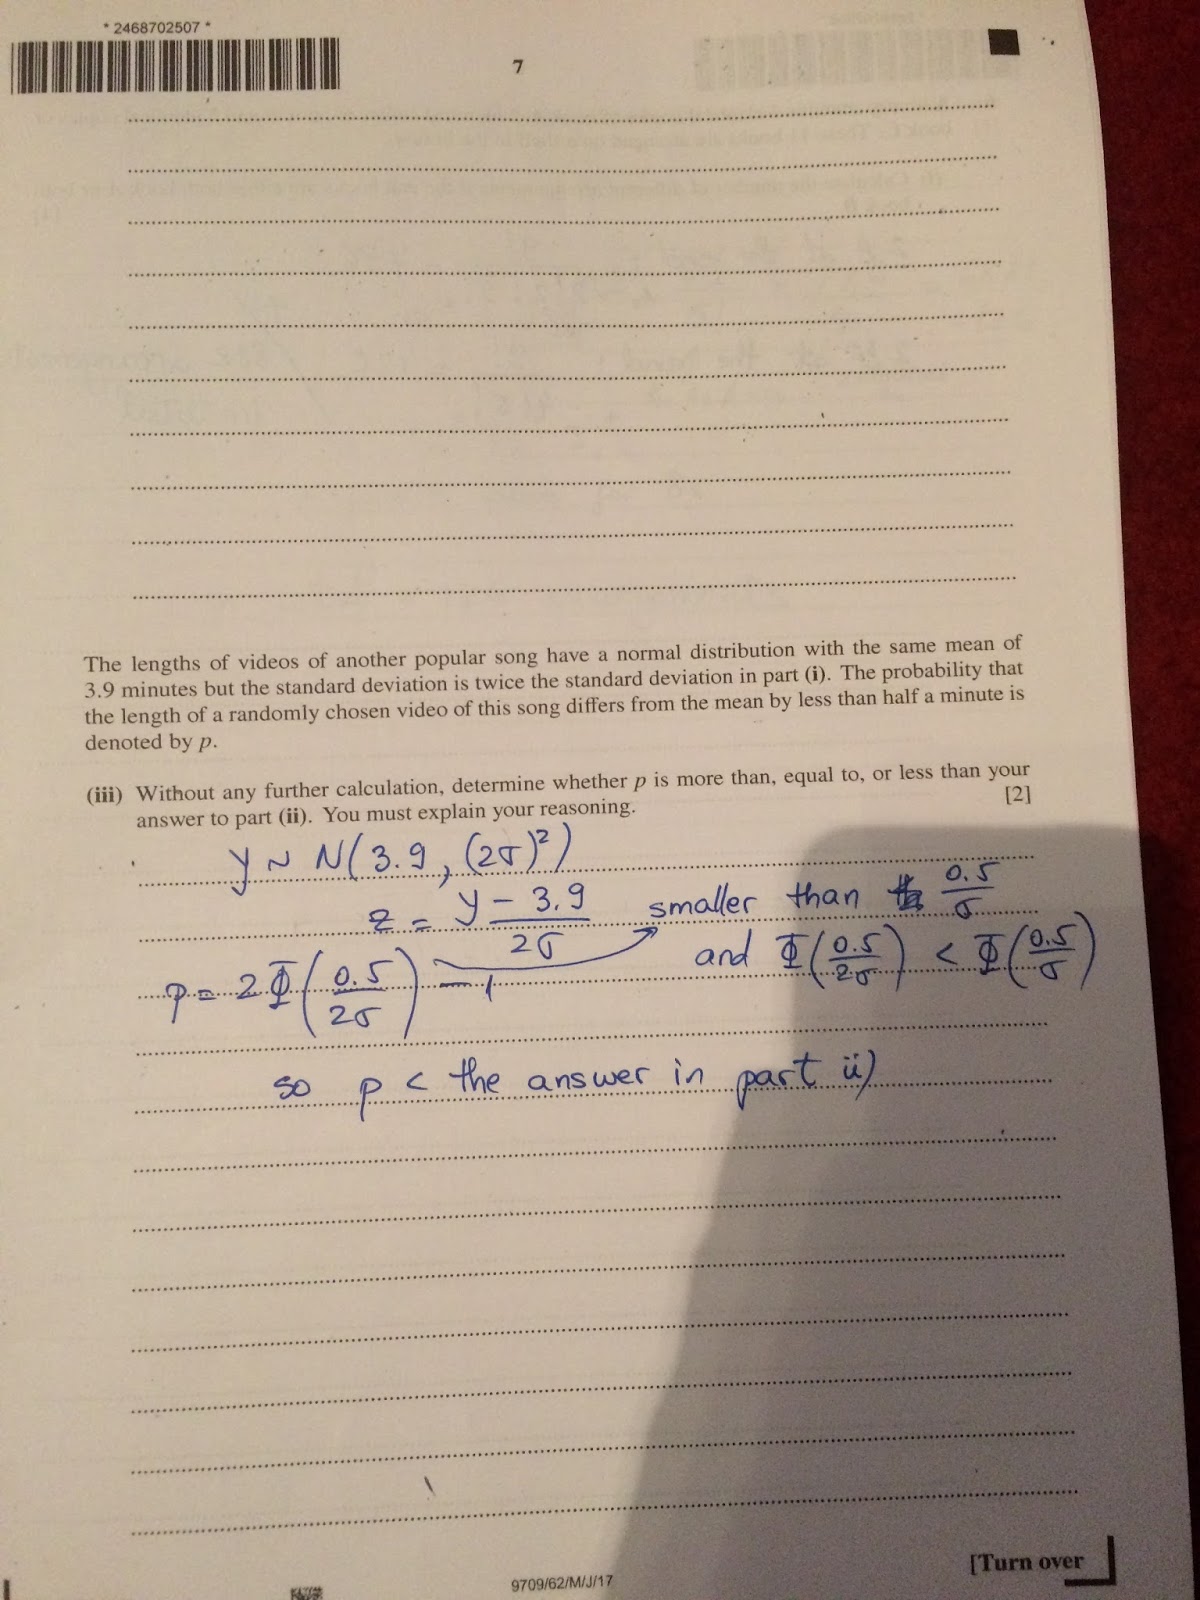 * 2468702507 *
7
The lengths of videos of another popular song have a normal distribution with the same mean of
3.9 minutes but the standard deviation is twice the standard deviation in part (i). The probability that
the length of a randomly chosen video of this song differs from the mean by less than half a minute is
denoted by p.
(iii) Without any further calculation, determine whether p is more than, equal to, or less than your
answer to part (ii). You must explain your reasoning. [2]
Y ~ N(3.9, (2σ)²)
z = y - 3.9 / 2σ smaller than 0.5/σ
p = 2Φ(0.5/2σ) - 1 and Φ(0.5/2σ) < Φ(0.5/σ)
so p < the answer in part ii)
[Turn over
9709/62/M/J/17